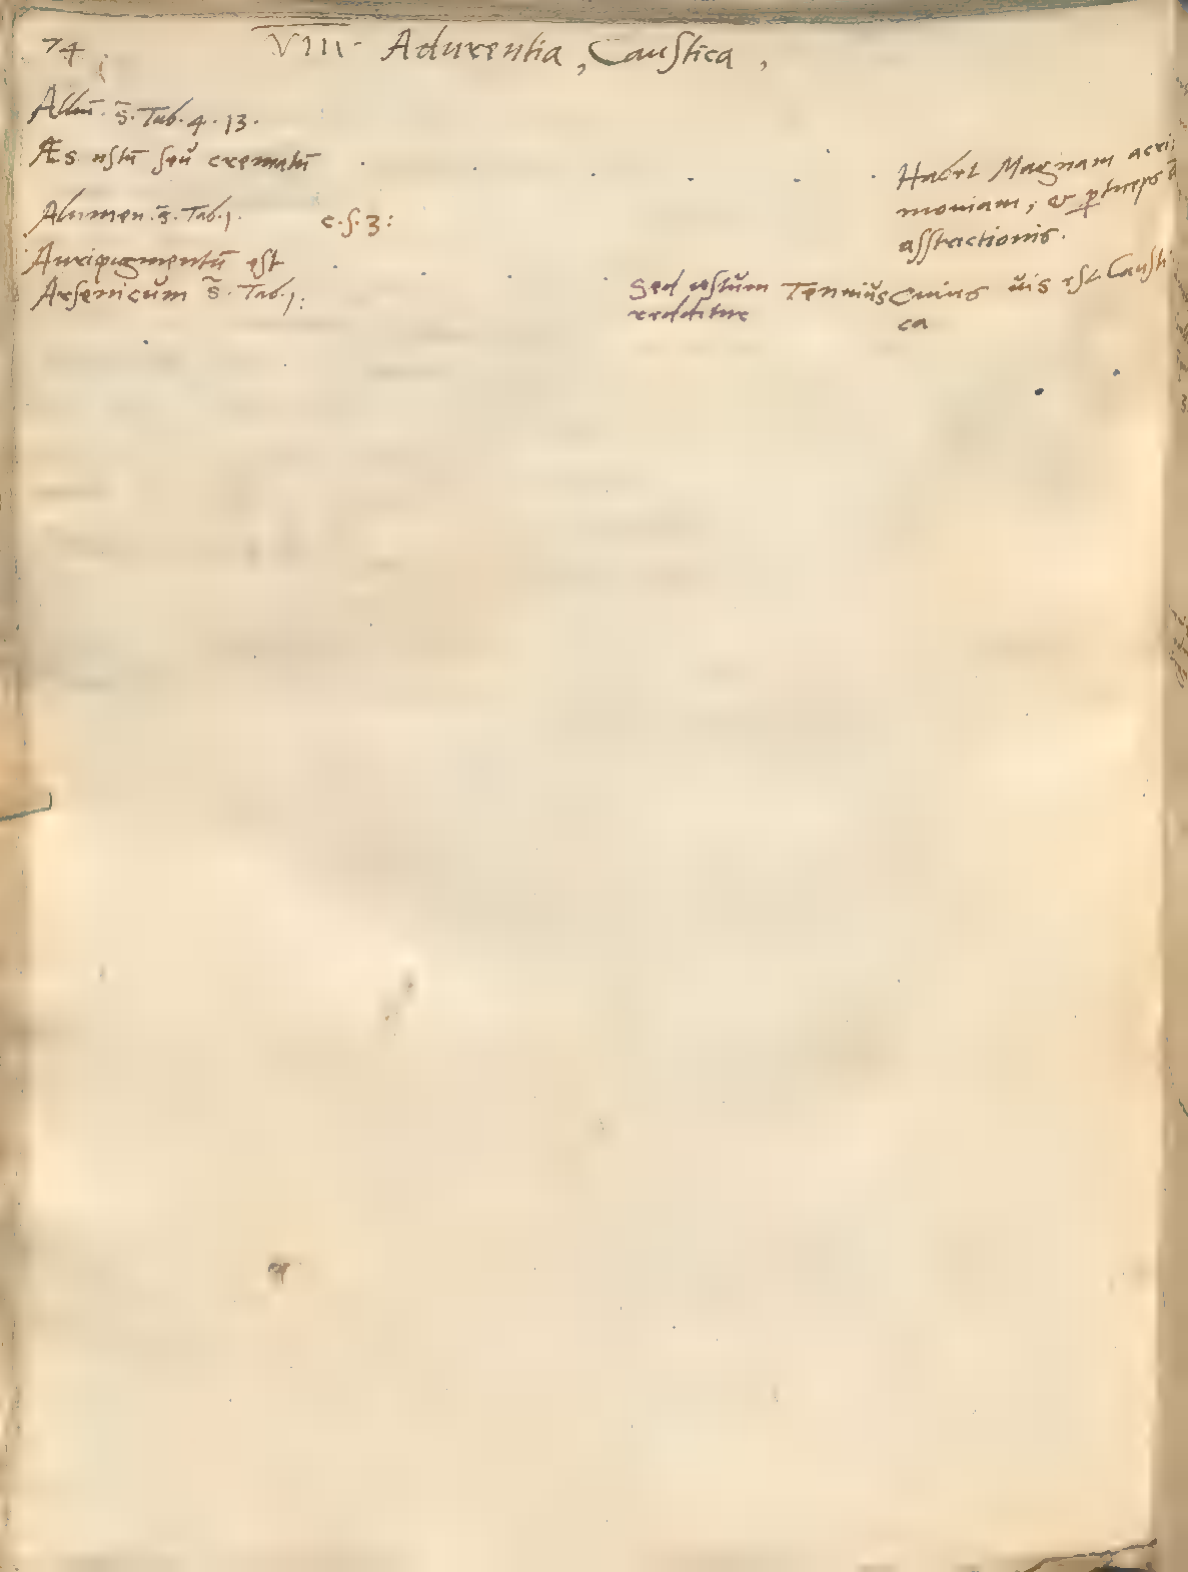 74
VIII. Adurentia, Caustica,
Alliū. s̄. Tab. 4. 13.
Æs ustū seŭ crematū
Habet Magnam acri-
moniam, & ꝑticeps
asstrictionis.
Alumen. s̄. Tab. 1. c. s. 3:
Auripigmentū est
Arsenicŭm s̃. Tab. 1:
Sed ustŭm Tenniŭs
redditur
Cuius ŭis est Causti
ca